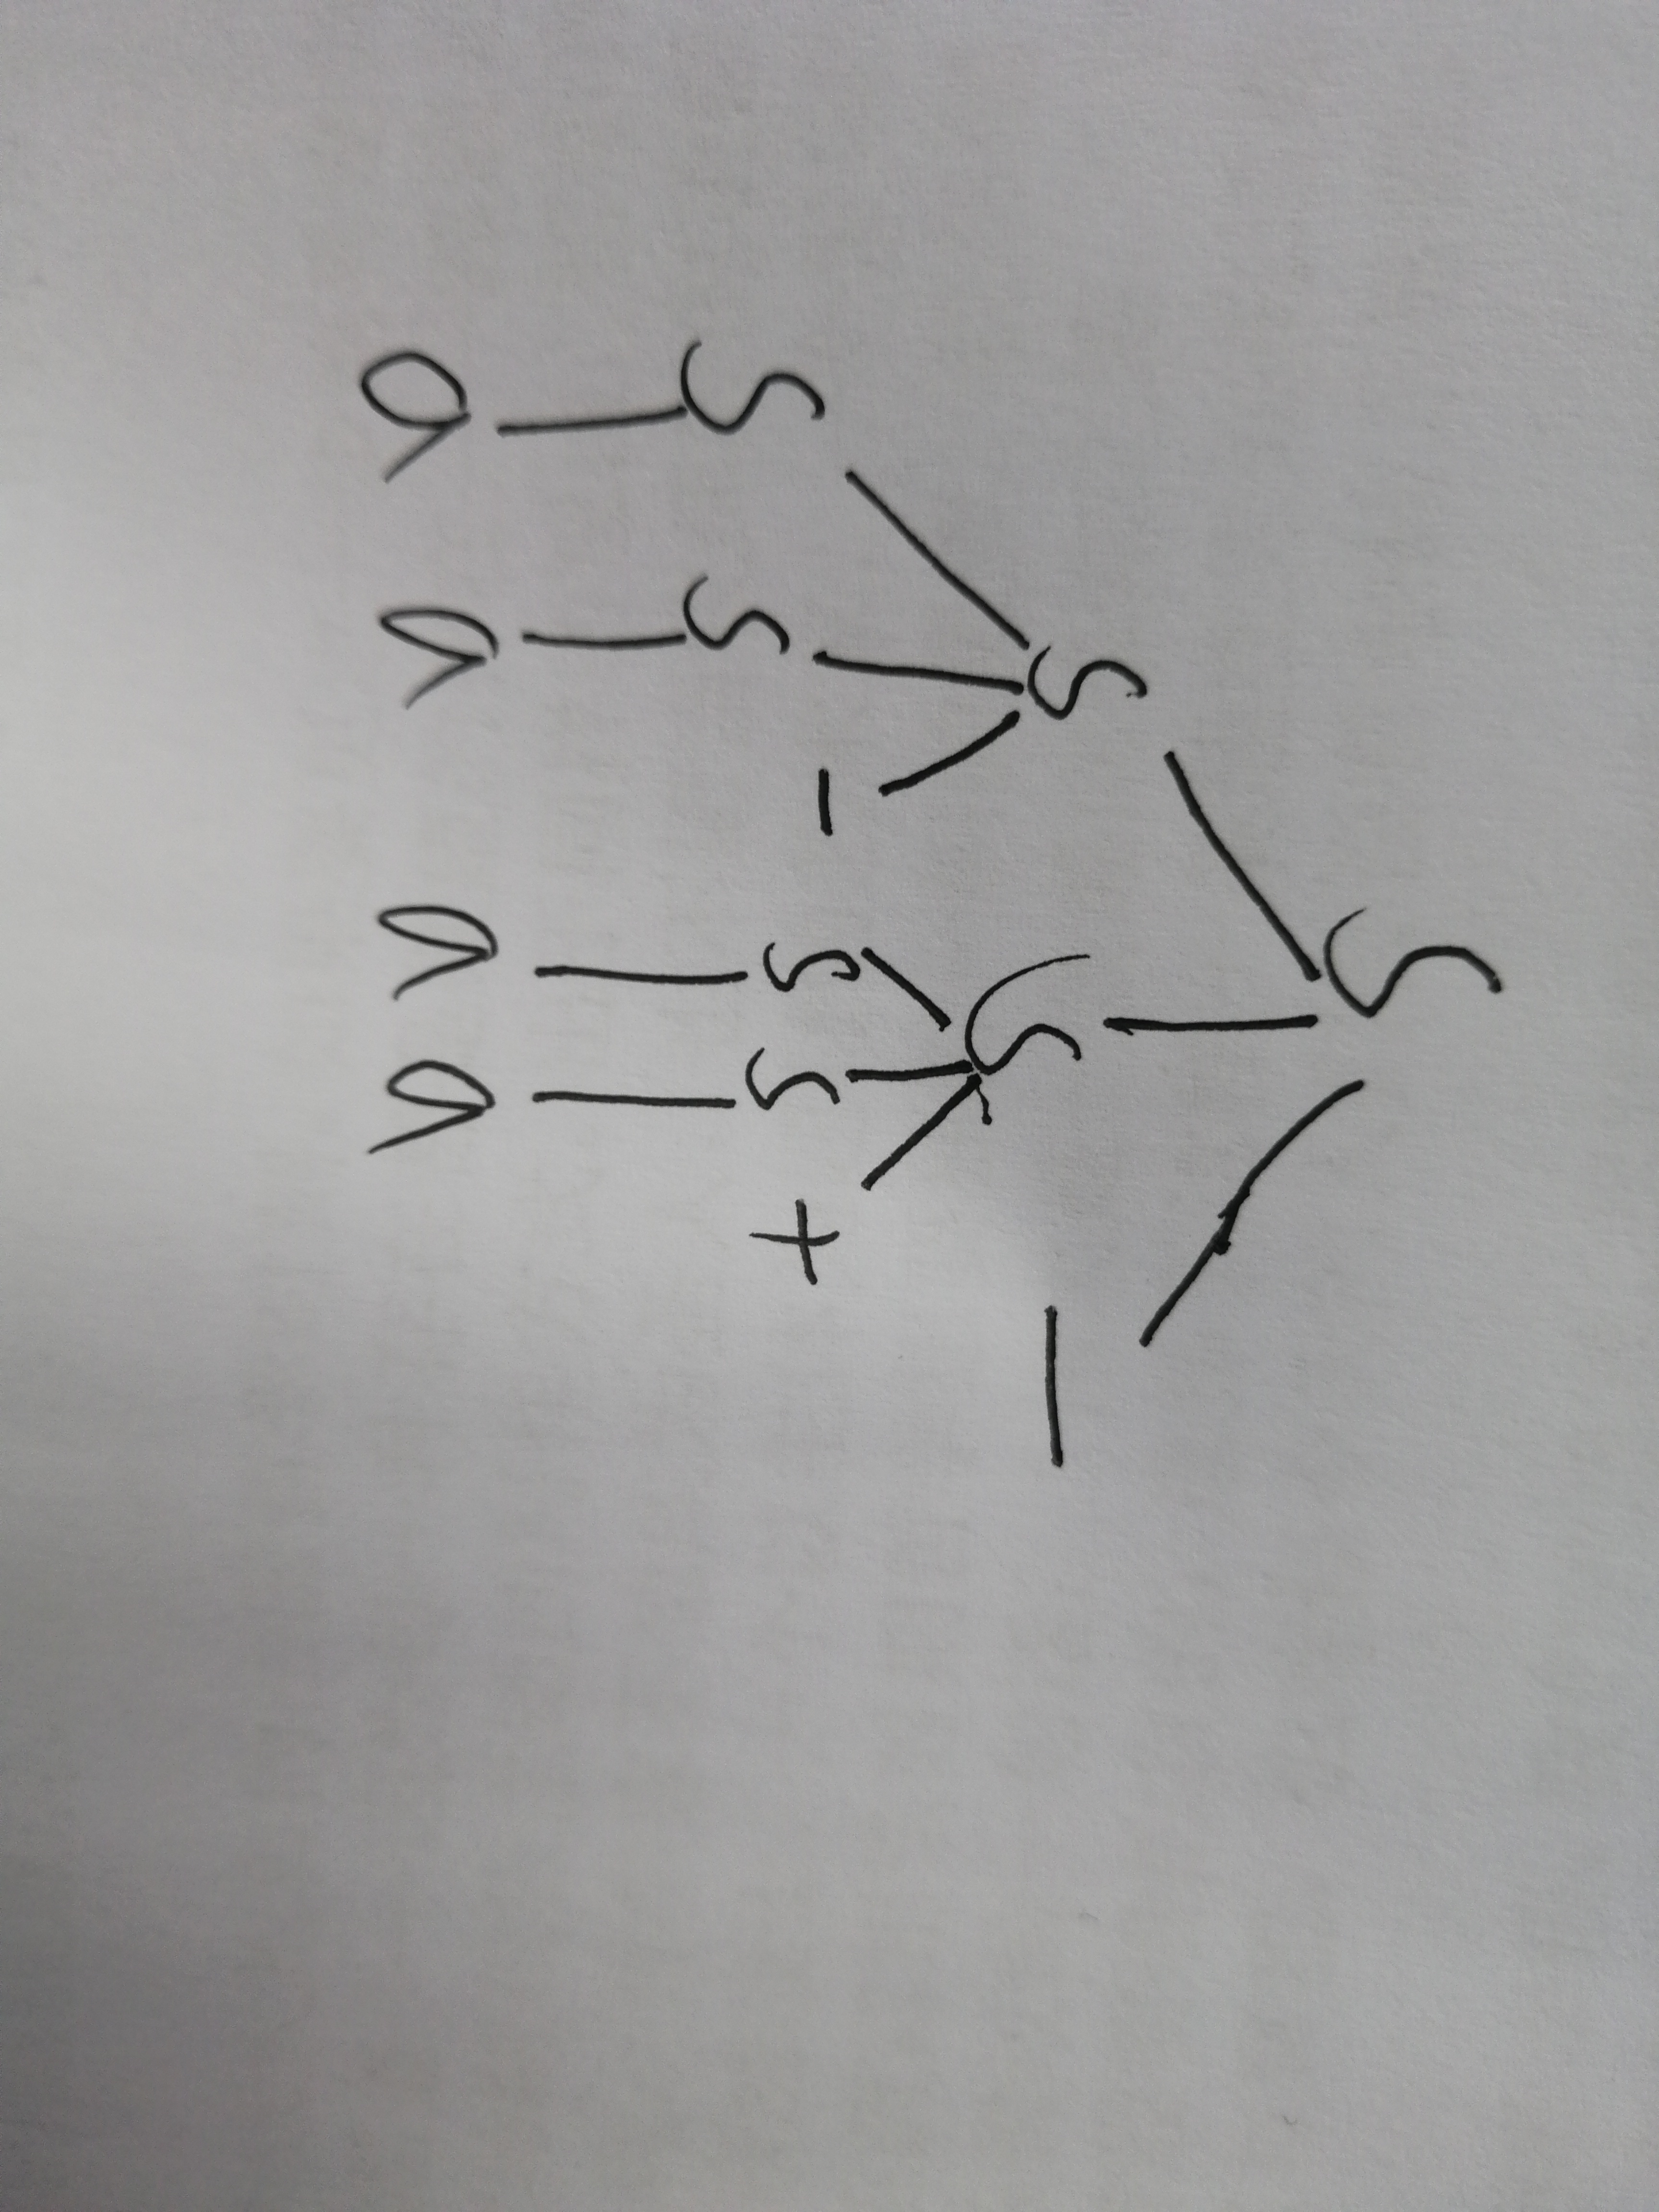 S
S S —
S S - S S +
a a a a